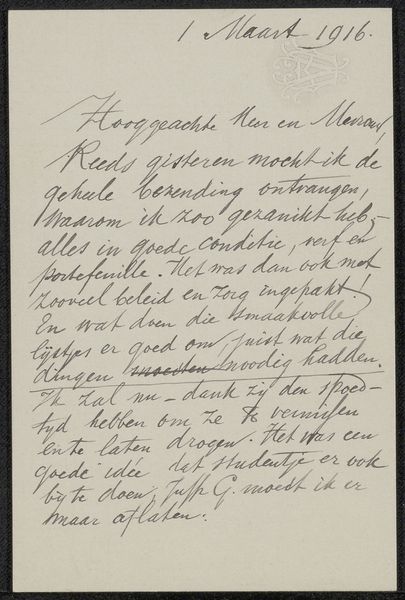 1 Maart 1916.
Hooggeachte Heer en Mevrouw,
Reeds gisteren mocht ik de
geheele bezending ontvangen,
waarom ik zoo gezanikt heb,-
alles in goede conditie, verf en
portefeuille. Het was dan ook met
zooveel beleid en zorg ingepakt!
En wat doen die smaakvolle
lijstjes er goed om, juist wat die
dingen moesten noodig hadden.
Ik zal nu - dank zij den spoed-
tijd hebben om ze te vernissen
en te laten drogen. Het was een
goede idée dat studentje er ook
bij te doen, Juffr G. moest ik er
maar aflaten.